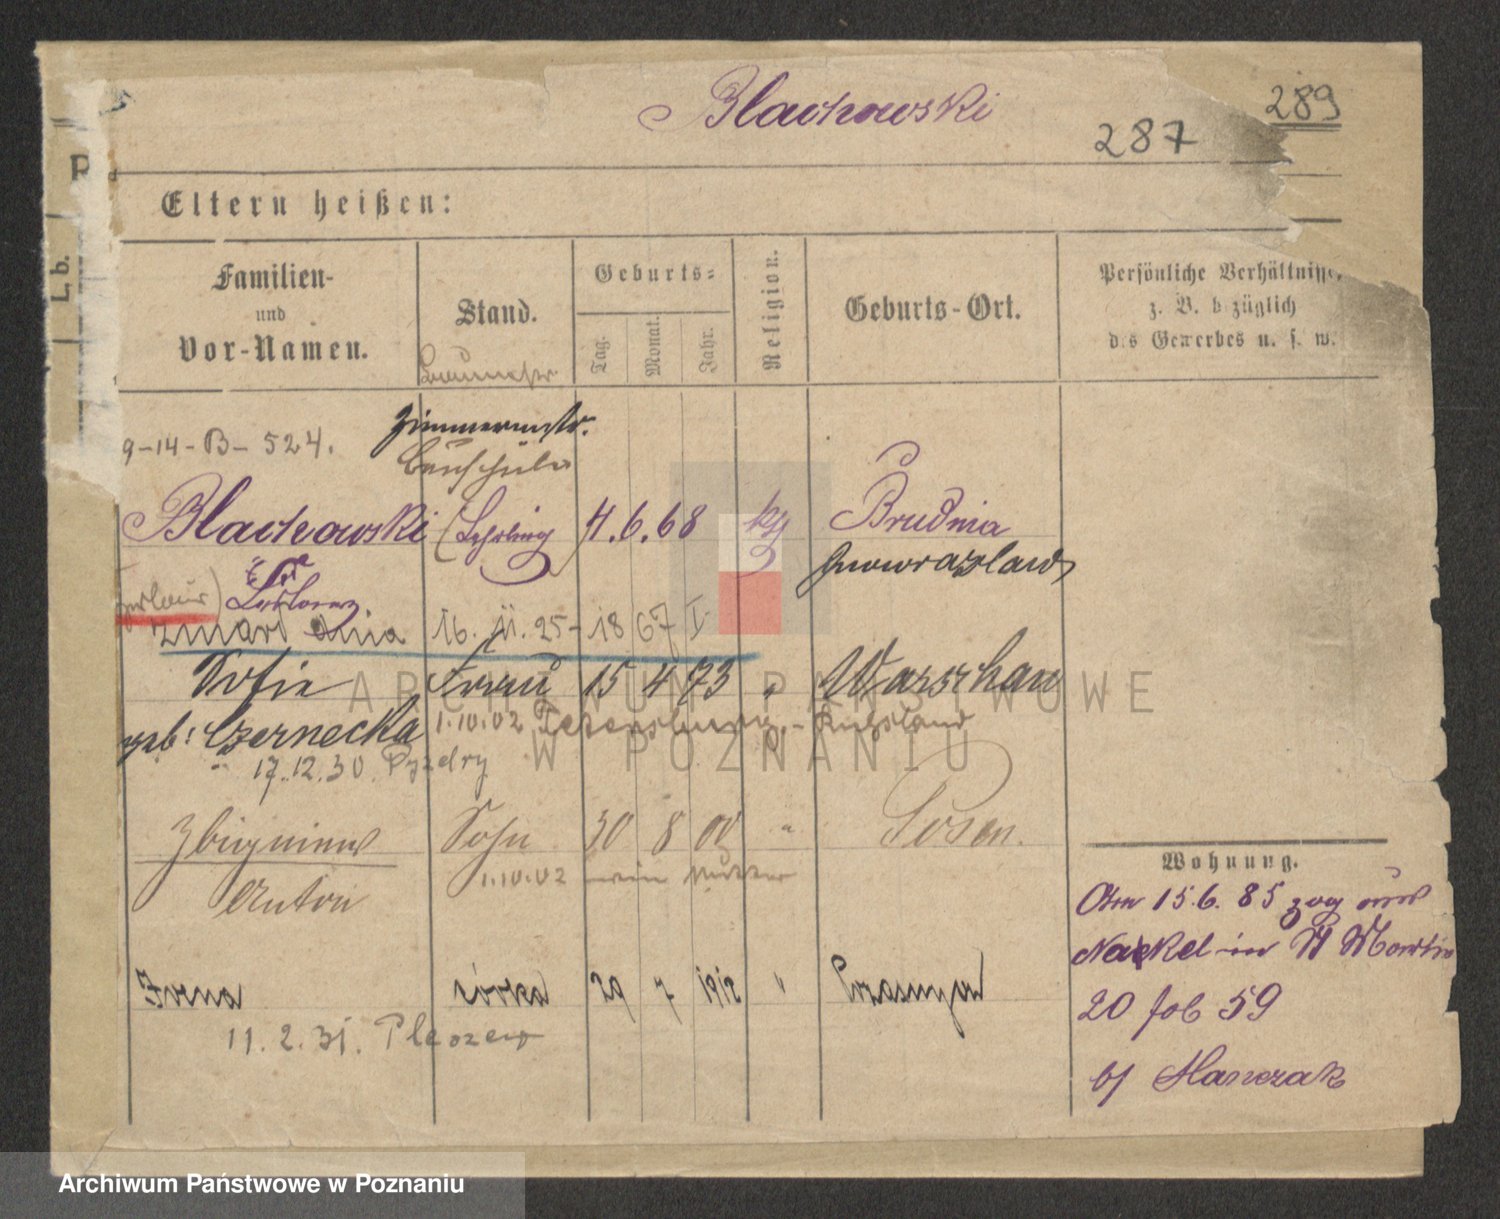 Blachowski
287
289
L, b.
Eltern heißen:
Familien-
und
Vor-Namen.
Stand.
Geburts-
Tag.
Monat.
Jahr.
Religion.
Geburts-Ort.
Persönliche Verhältnisse
z. B. bezüglich
des Gewerbes u. s. w.
Baumeister
9-14-B-524.
Zimmermstr.
Bauschüler
Blachowski (Lehrling) 4.6.68 Brudnia
Inowrazlaw
zmarł dnia 16. 11. 25-
Sofie Frau 15 4 73 " Warschau
geb: Czernecka 1.10.02 Petersburg - Rußland
17.12.30 Pyzdry
Zbigniew Sohn 30 8 00 " Posen.
1.10.02 wie Mutter
Anton
Irena córka 29 7 1912 "
11. 2. 31. Pleszew
Wohnung.
Am 15.6.85 zog aus
Nackel in St Martin
20 fol 59
b/ Hanczak
ARCHIWUM PAŃSTWOWE
W POZNANIU
Archiwum Państwowe w Poznaniu